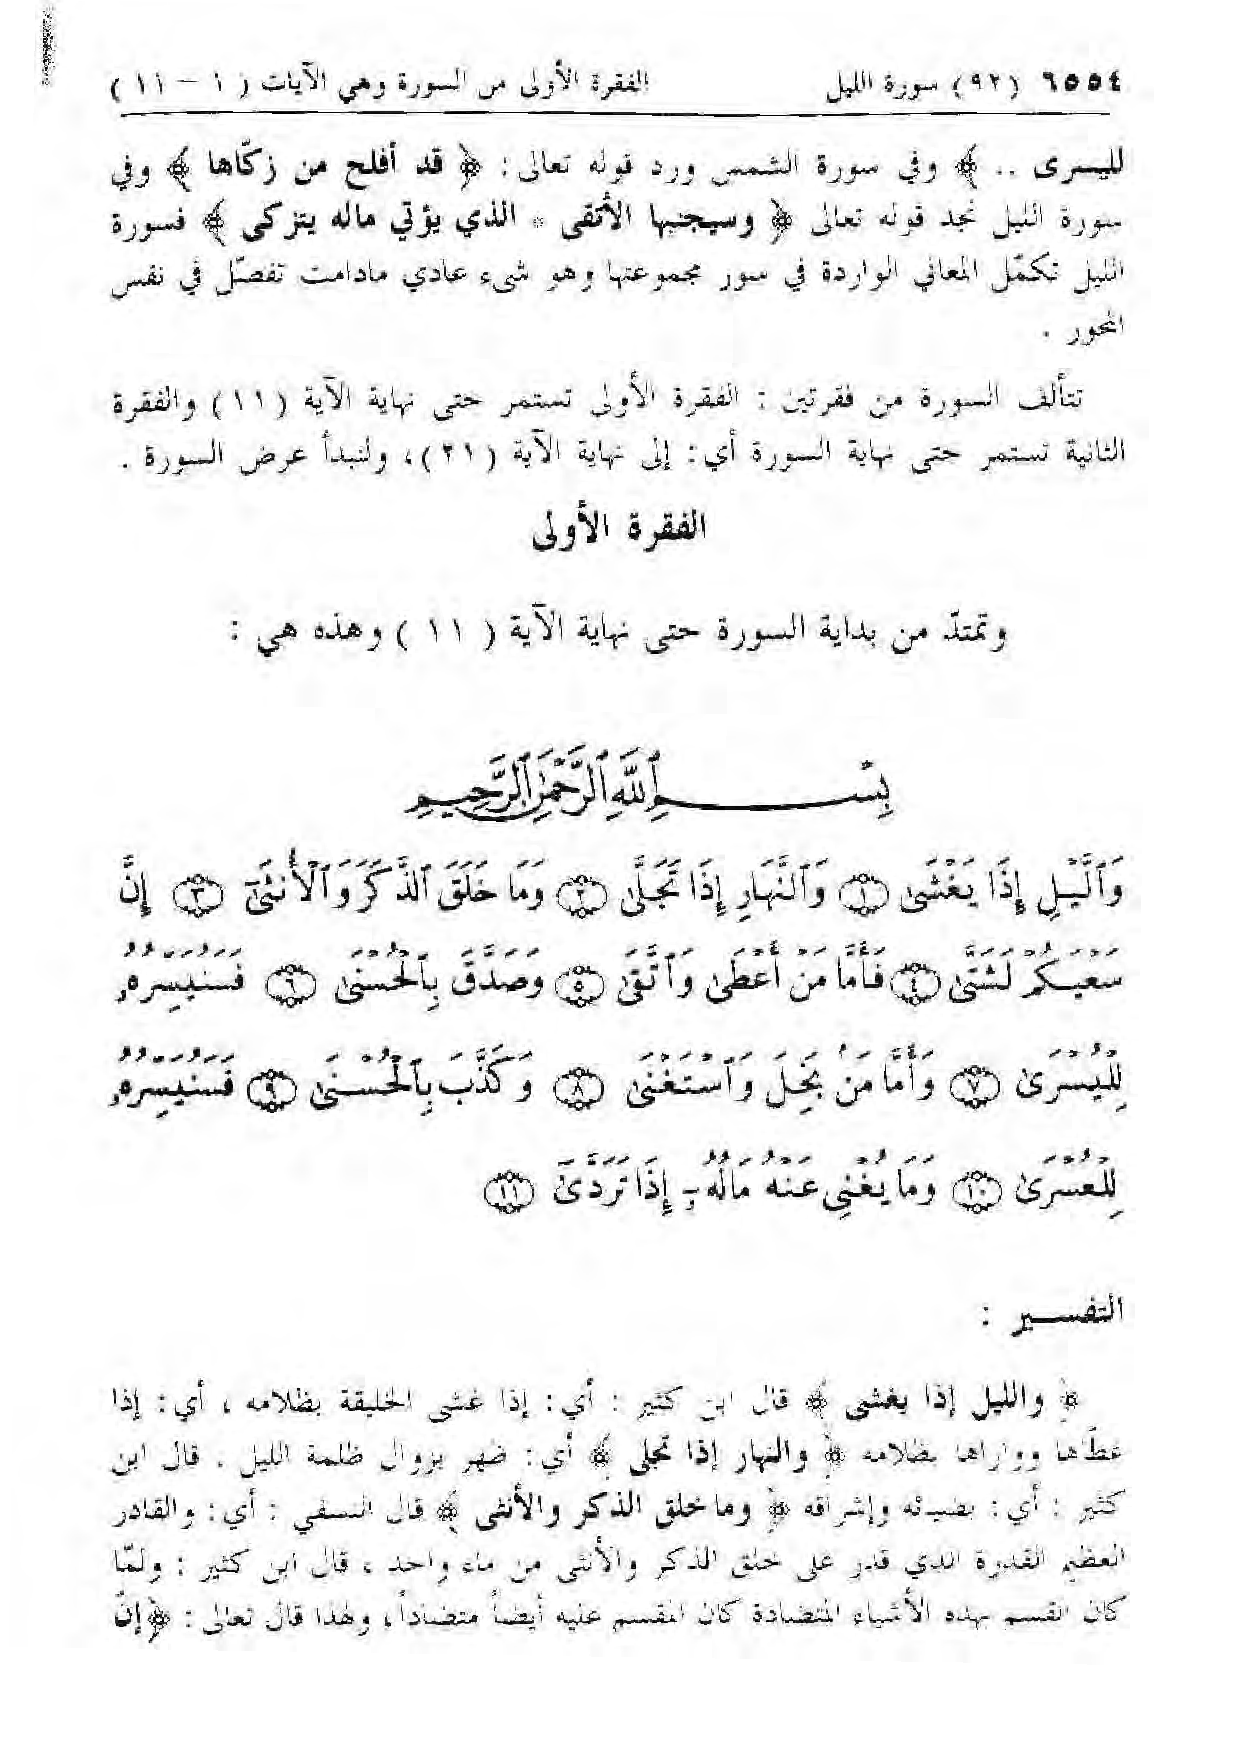 ٦٥٥٤ (٩٢) سورة الليل الفقرة الأولى من السورة وهي الآيات ( ١ - ١١ )
لليسرى .. ﴾ وفي سورة الشمس ورد قوله تعالى : ﴿ قد أفلح من زكّاها ﴾ وفي
سورة الليل نجد قوله تعالى ﴿ وسيجنبها الأتقى * الذي يؤتي ماله يتزكى ﴾ فسورة
الليل تكمّل المعاني الواردة في سور مجموعتها وهو شيء عادي مادامت تفصّل في نفس
المحور .
تتألف السورة من فقرتين : الفقرة الأولى تستمر حتى نهاية الآية (١١) والفقرة
الثانية تستمر حتى نهاية السورة أي : إلى نهاية الآية (٢١)، ولنبدأ عرض السورة .
الفقرة الأولى
وتمتدّ من بداية السورة حتى نهاية الآية ( ١١ ) وهذه هي :
بِسْمِ ٱللَّهِ ٱلرَّحْمَٰنِ ٱلرَّحِيمِ
وَٱلَّيْلِ إِذَا يَغْشَىٰ ١ وَٱلنَّهَارِ إِذَا تَجَلَّىٰ ٢ وَمَا خَلَقَ ٱلذَّكَرَ وَٱلْأُنثَىٰٓ ٣ إِنَّ
سَعْيَكُمْ لَشَتَّىٰ ٤ فَأَمَّا مَنْ أَعْطَىٰ وَٱتَّقَىٰ ٥ وَصَدَّقَ بِٱلْحُسْنَىٰ ٦ فَسَنُيَسِّرُهُۥ
لِلْيُسْرَىٰ ٧ وَأَمَّا مَنۢ بَخِلَ وَٱسْتَغْنَىٰ ٨ وَكَذَّبَ بِٱلْحُسْنَىٰ ٩ فَسَنُيَسِّرُهُۥ
لِلْعُسْرَىٰ ١٠ وَمَا يُغْنِى عَنْهُ مَالُهُۥٓ إِذَا تَرَدَّىٰٓ ١١
التفسير :
﴿ والليل إذا يغشى ﴾ قال ابن كثير : أي : إذا غشى الخليقة بظلامه ، أي : إذا
غطّاها وواراها بظلامه ﴿ والنهار إذا تجلى ﴾ أي : ظهر بزوال ظلمة الليل . قال ابن
كثير : أي : بضيائه وإشراقه ﴿ وما خلق الذكر والأنثى ﴾ قال النسفي : أي : والقادر
العظيم القدرة الذي قدر على خلق الذكر والأنثى من ماء واحد ، قال ابن كثير : ولمّا
كان القسم بهذه الأشياء المتضادة كان المقسم عليه أيضاً متضاداً، ولهذا قال تعالى : ﴿ إنّ